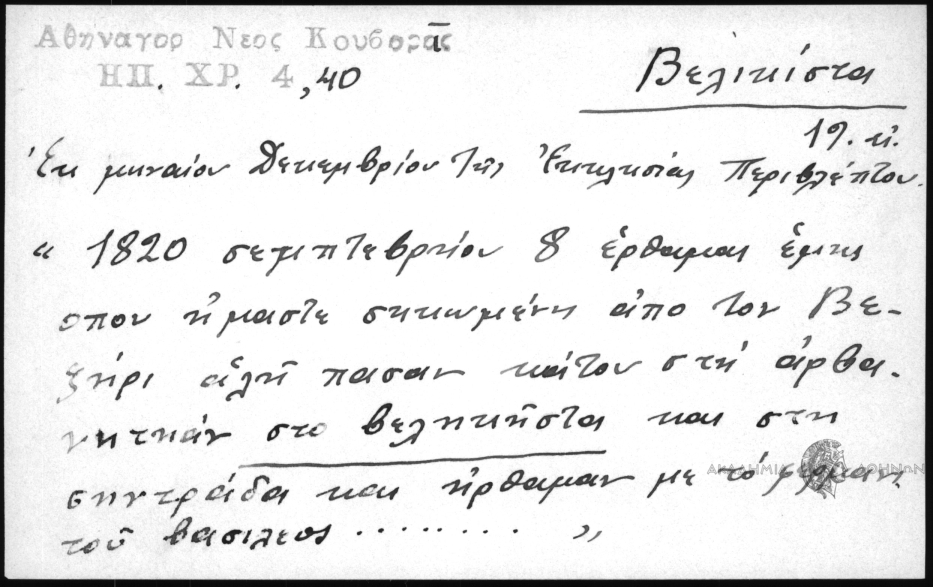 Αθηναγορ Νεος Κουβαρας
ΗΠ. ΧΡ. 4,40
Βελικίστα
19. αἰ.
Ἐκ μηναίου Δεκεμβρίου τῆς Ἐκκλησίας Περιβλέπτου.
" 1820 σεμπτεβρηίου 8 ἐρθαμαι ἐμης
οπου ἠμαστε σηκωμένη ἀπο τον Βε-
ζηρι ἀλῆ πασαν κάτου στή ἀρβα-
νητηάν στο βεληκῆστα και στη
σηντράδα και ἠρθαμαν με τό φερμανι
τοῦ βασιλεος ......... "
ΑΚΑΔΗΜΙΑ ΑΘΗΝΩΝ